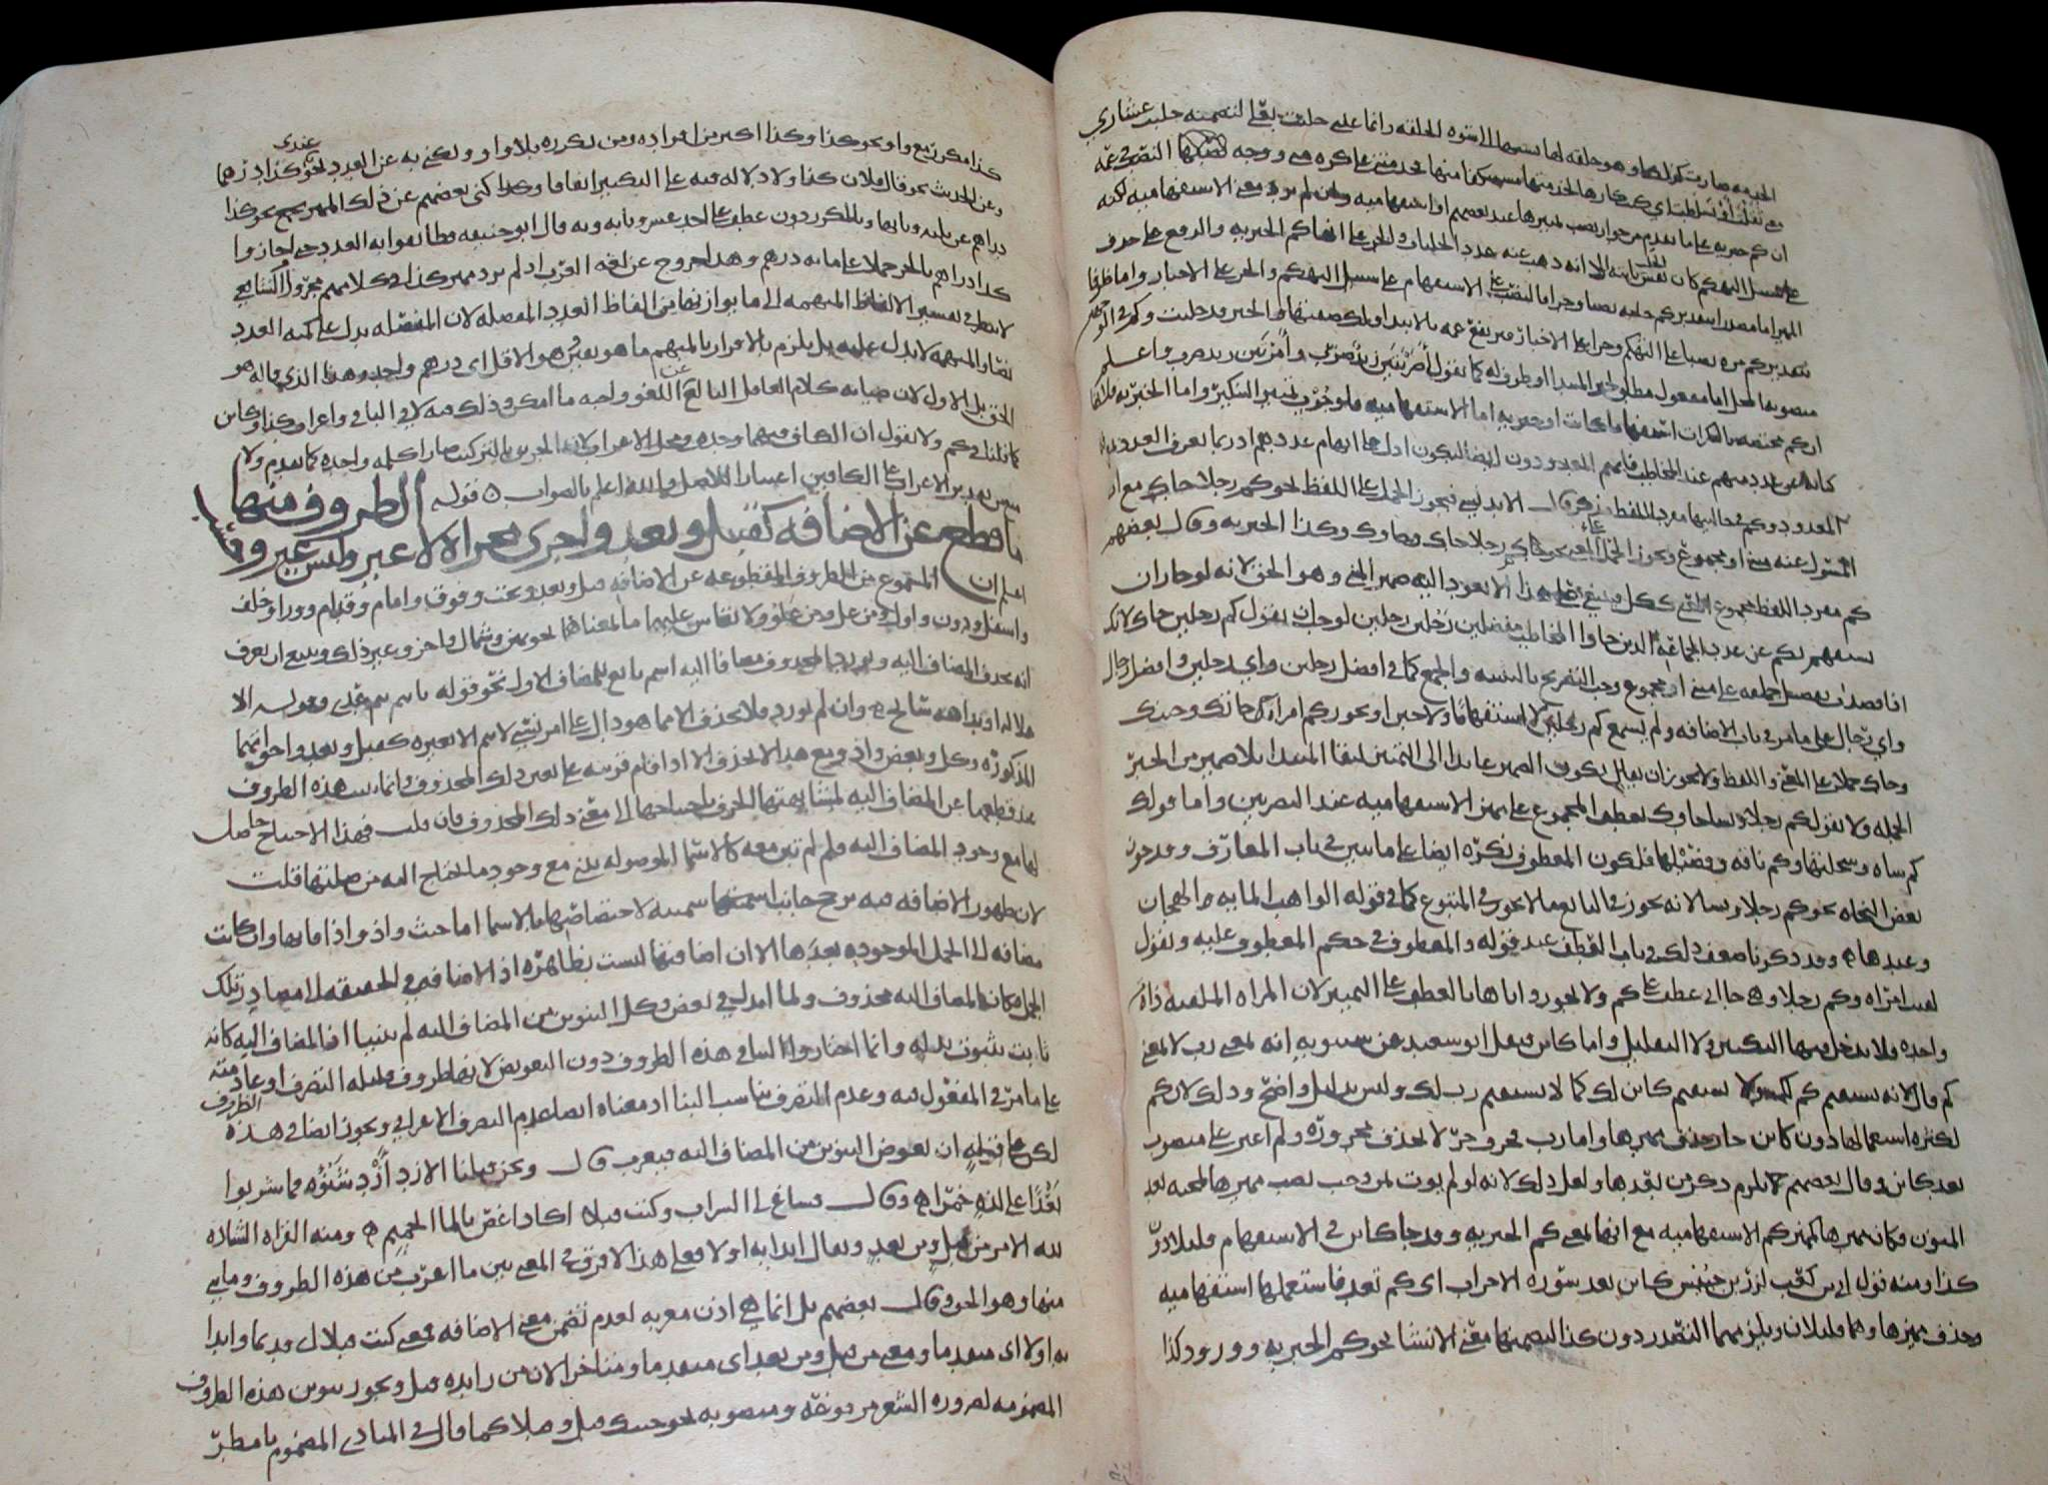 صارت كذلك وهو خلقه لها نسبها الى شوه الخلقه وانما عدى حلبت بعلى لتضمنه حلبت عشاري
معنى ثقلت او تسلطت اي كنت كارها لخدمتها مستنكفا منها فخدمتنى على كره منى ووجه النصب فى عمه
ان كم خبريه على ما تقدم من جواز نصب مميزها عند بعضهم او استفهاميه وان لم يرد معنى الاستفهاميه لكنه
على سبيل التهكم كان لعل نفس ثابته الا انه ذهب عنه عدد الحلبات والجر على انها كم الخبريه والرفع على حذف
المميز اما مصدرا بتقدير كم حلبه نصبا وجرا فالنصب على الاستفهام على سبيل التهكم والجر على الاخبار واما ظرفا
بتقدير كم مره نصبا على التهكم وجرا على الاخبار فترتفع عمه بالابتداء ولك صفتها والخبر قد حلبت وكم فى الوجهين
منصوبه المحل اما مفعول مطلق لخبر المبتدا او ظرف له كما تقول اضربتين زيد ضرب وامرتين زيد ضرب واعلم
ان كم مختصه بالنكرات استفهاميه كانت او خبريه اما الاستفهاميه فلوجوب تمييز التنكير واما الخبريه فلانها
كنايه عن عدد مبهم عند المخاطب
المعدود وكم فى حاليها مفرد اللفظ الاندلسي فيجوز الحمل على اللفظ نحو كم رجلا جاك مع ان
المسئول عنه مثنى او مجموع ويجوز الحمل على المعنى نحو كم رجلا جاك وجاوك وكذا الخبريه وقال بعضهم
كم مفرد اللفظ مجموع المعنى ككل فينبغي على هذا الا يعود اليه ضمير المثنى وهو الحق لانه لو جاز ان
يستفهم بكم عن عدد الجماعه الذين جاوا المخاطب مفصلين رجلين رجلين لوجب ان يقول كم رجلين جاك لانك
اذا قصدت تفصيل جماعه على مثنى او مجموع وجب التصريح بالتثنيه والجمع كما فى افضل رجلين واي رجلين وافضل رجال
واي رجال على ما مر فى باب الاضافه ولم يسمع كم رجلين لا استفهاما ولا خبرا ونحو كم امراة جاتك وجئنك
وجاك حملا على المعنى واللفظ ولا يجوز ان يكون الضمير عائدا الى التمييز لبقا المبتدا بلا ضمير من الخبر
الجمله ولا تقول كم رجلا ونسا جاوك بعطف المجموع على مميز الاستفهاميه عند البصريين واما قولك
كم شاه وسخلتها وكم ناقه وفصيلها فلكون المعطوف نكره ايضا على ما تبين فى باب المعارف وقد جوز
بعض النحاه نحو كم رجلا ونسا لانه يجوز فى التابع ما لا يجوز فى المتبوع كما فى قوله الواهب المايه الهجان
وعبدها وقد ذكرنا ضعف ذلك فى باب العطف عند قوله والمعطوف فى حكم المعطوف عليه وتقول
لقيت امراة وكم رجلا وهى جاانى عطف على كم ولا يجوز واياها بالعطف على التمييز لان المراه الملقيه ذاة
واحده فلا يدخل فيها التكثير ولا التقليل واما كاين فنقل ابو سعيد عن سيبويه انه بمعنى رب لا بمعنى
كم قال لانه يستقيم كم لك ولا يستقيم كاين لك كما لا يستقيم رب لك وليس بدليل واضح وذلك لان كم
لكثره استعمالها دون كاين جاز حذف مميزها واما رب فحرف جر لا يحذف مجروره ولم اعثر على منصوب
بعد كاين وقال بعضهم يلزم ذكر من بعدها ولعل ذلك لانه لو لم يوت بمن وجب نصب مميزها لمجيه بعد
المنون فكان مميزها كمميز كم الاستفهاميه مع انها بمعنى كم الخبريه وقد جا كاين فى الاستفهام قليلا دون
كذا ومنه قول ابي بن كعب لزر بن حبيش كاين تعد سوره الاحزاب اي كم تعد فاستعملها استفهاميه
وحذف مميزها وهما قليلان ويلزمهما التصدر دون كذا لتضمنهما معنى الانشا نحو كم الخبريه وورود كذا
كذا مكررا مع واو نحو كذا وكذا اكثر من افراده ومن تكرره بلا واو ويكنى به عن العدد نحو عندى كذا درهما
وعن الحديث نحو قال فلان كذا ولا دلاله فيه على التكثير اتفاقا وكذا كنى بعضهم عن ذلك المميز بجمع نحو كذا
دراهم عن ثلثه وبابها وبالمكرر دون عطف على احد عشر وبابه وبه قال ابو حنيفه فطابقوا به العدد حتى اجازوا
كذا دراهم بالجر حملا على مايه درهم وهذا خروج عن لغه العرب اذ لم يرد مميز كذا فى كلامهم مجرورا والشافعي
لا ينظر فى تفسير الالفاظ المبهمه الى ما يوازنها من الفاظ العدد المفصله لان المفصله تدل على كميه العدد
نصا والمبهمه لا تدل عليه بل يلزم بالاقرار بالمبهم ما هو يقين وهو الاقل اى درهم واحد وهذا الذي قاله هو
الحق بل الاول لان صيانه كلام العاقل البالغ عن اللغو واجبه ما امكن وذلك فيه لا فى الباقى واعراب كذا وكاين
كما قلنا فى كم ولا نقول ان الكاف فيهما وحده محل الاعراب لان الجزين بالتركيب صارا كلمه واحده كما تقدم ولا
اعتبارا للاصل والله اعلم بالصواب ه قوله الظروف منها
ما قطع عن الاضافه كقبل وبعد واجرى مجراه لا غير وليس غير وحسب
اعلم ان المسموع من الظروف المقطوعه عن الاضافه قبل وبعد وتحت وفوق وامام وقدام وورا وخلف
واسفل ودون واول ومن عل ومن علو ولا تقاس عليها ما بمعناها نحو يمين وشمال واخر وغير ذلك وينبغى ان تعرف
انه يحذف المضاف اليه ويورد المحذوف مضافا اليه اسم تابع للمضاف الاول نحو قوله يا تيم تيم عدي وقوله الا
علاله او بداهه سابح وان لم يورد فلا يحذف الا مما هو دال على امر نسبي لا يتم الا بغيره كقبل وبعد واخواتهما
المذكوره وكل وبعض واذ ومع هذا لا يحذف الا اذا قام قرينه على تعيين ذلك المحذوف وانما بنيت هذه الظروف
عند قطعها عن المضاف اليه لمشابهتها الحرف باحتياجها الى معنى ذلك المحذوف فان قلت فهذا الاحتياج حاصل
لها مع وجود المضاف اليه فلم لم تبن معه كالاسما الموصوله تبنى مع وجود ما تحتاج اليه من صلتها قلت
لان ظهور الاضافه فيه ترجح جانب اسميتها لاختصاصها بالاسما اما حيث واذ واذا فانها وان كانت
مضافه الى الجمل الموجوده بعدها الا ان اضافتها ليست بظاهره اذ الاضافه فى الحقيقه الى مصادر تلك
الجمل فكان المضاف اليه محذوف ولما ابدل فى بعض وكل التنوين من المضاف اليه لم يبنيا اذ المضاف اليه كانه
ثابت بثبوت بدله وانما اختاروا البنا فى هذه الظروف دون التعويض لانها ظروف قليله التصرف او عادمته
على ما مر فى المفعول فيه وعدم التصرف يناسب البنا اذ معناه ايضا عدم التصرف الاعرابي ويجوز ايضا فى هذه الظروف
لكن على قله ان يعوض التنوين من المضاف اليه فيعرب قال ونحن قتلنا الازد ازد شنوه فما شربوا
بعدا على لذه خمرا وقال فساغ لى الشراب وكنت قبلا اكاد اغص بالما الحميم ومنه القراه الشاذه
لله الامر من قبل ومن بعد ويقال ابدا به اولا فعلى هذا لا فرق فى المعنى بين ما اعرب من هذه الظروف وما بني
منها وهو الحق وقال بعضهم بل انما هي اذن معربه لعدم تضمن معنى الاضافه فمعنى كنت قبلا اى قديما وابدا
به اولا اى متقدما ومعنى من قبل ومن بعد اى متقدما ومتاخرا لان من زايده قبل ويجوز تنوين هذه الظروف
المضمومه لضروره الشعر مرفوعه ومنصوبه نحو جئتك قبل وقبلا كما قال فى المنادى المضموم يا مطر